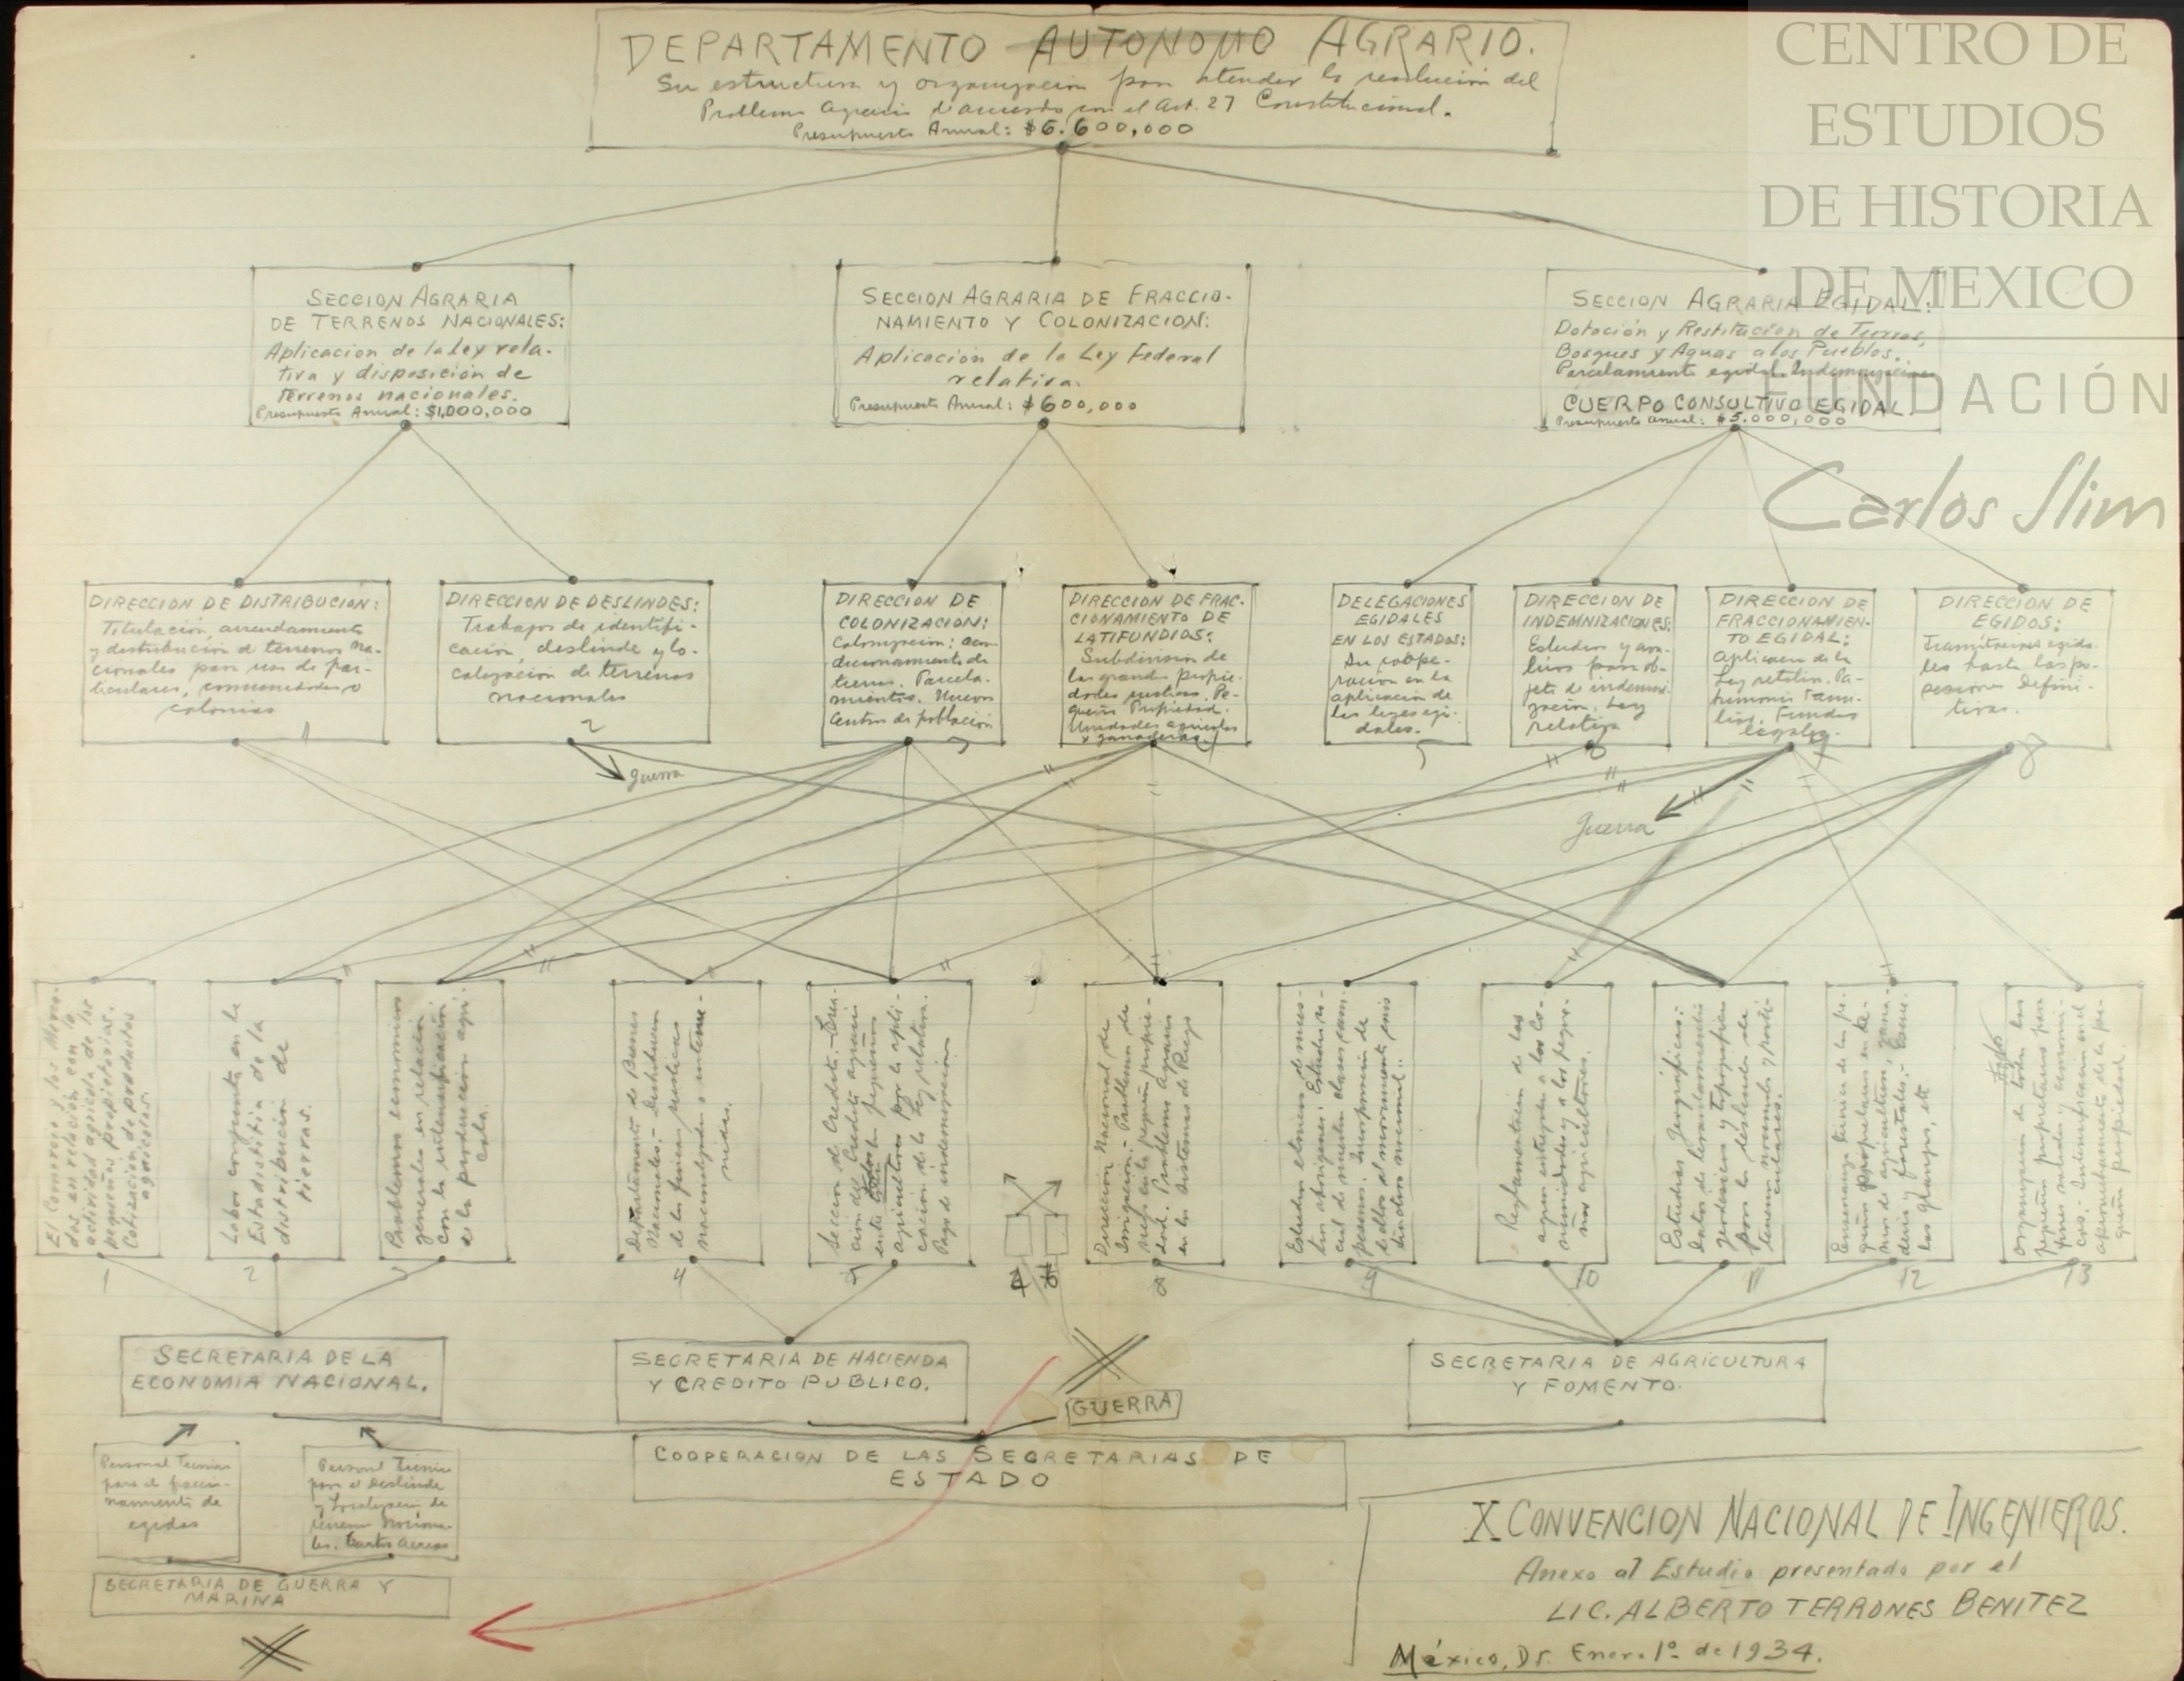 DEPARTAMENTO AUTONOMO AGRARIO.
Su estructura y organizacion para atender la resolución del
Problema Agrario d'acuerdo con el Art. 27 Constitucional.
Presupuesto Anual: $6.600,000
CENTRO DE
ESTUDIOS
DE HISTORIA
DE MEXICO
FUNDACIÓN
Carlos Slim
SECCION AGRARIA
DE TERRENOS NACIONALES:
Aplicacion de la Ley rela-
tiva y disposición de
terrenos nacionales.
Presupuesto Anual: $1,000,000
SECCION AGRARIA DE FRACCIO-
NAMIENTO Y COLONIZACION:
Aplicación de la Ley Federal
relativa.
Presupuesto Anual: $600,000
SECCION AGRARIA EGIDAL:
Dotación y Restitucion de Tierras,
Bosques y Aguas a los Pueblos.
Parcelamiento egidal. Indemnizaciones
CUERPO CONSULTIVO EGIDAL.
Presupuesto anual: $5.000,000
DIRECCION DE DISTRIBUCION:
Titulación, arrendamiento
y distribucion de terrenos na-
cionales para uso de par-
ticulares, comunidades o
colonias
1
DIRECCION DE DESLINDES:
Trabajos de identifi-
cación, deslinde y lo-
calizacion de terrenos
nacionales
2
Guerra
DIRECCION DE
COLONIZACION:
Colonizacion: acon-
dicionamiento de
tierras. Parcela-
mientos. Nuevos
Centros de población
DIRECCION DE FRAC-
CIONAMIENTO DE
LATIFUNDIOS:
Subdivision de
las grandes propie-
dades rusticas. Pe-
queña Propiedad.
Unidades agricolas
y ganaderas.
DELEGACIONES
EGIDALES
EN LOS ESTADOS:
Su coope-
racion en la
aplicacion de
las leyes egi-
dales.
5
DIRECCION DE
INDEMNIZACIONES:
Estudios y ava-
lúos para ob-
jeto de indemni-
zacion. Ley
relativa
DIRECCION DE
FRACCIONAMIEN-
TO EGIDAL:
aplicacion de la
Ley relativa. Pa-
trimonio Fami-
liar. Fundos
legales.
7
DIRECCION DE
EGIDOS:
Tramitaciones egida-
les hasta las po-
sesiones defini-
tivas.
8
Guerra
El Comercio y los Merca-
dos en relación con la
actividad agricola de los
pequeños propietarios.
Cotizacion de productos
agricolas.
1
Labor conjunta en la
Estadistica de la
distribucion de
tierras.
2
Problemas economicos
generales en relación
con la intensificación
de la produccion agri-
cola.
3
Departamento de Bienes
Nacionales.- Distribucion
de las fincas rusticas
nacionalizadas o interve-
nidas.
4
Seccion de Credito.-
ción del Credito agrario
entre todos los pequeños
agricultores por la apli-
cación de la Ley relativa.
Pago de indemnizacion
5
Dirección Nacional de
Irrigacion.- Problema de
riego en la pequeña propie-
dad. Problema Agrario
en los Sistemas de Riego
8
Estudios etnicos de nues-
tros aborigenes: Estudio
cial de nuestra clase cam-
pesina. Incorporación de
9
Reglamentacion de las
aguas entregadas a las Co-
munidades y a los peque-
ños agricultores.
10
Estudios geograficos:
Datos de levantamientos
geodesicos y topograficos
para los deslindes de
terrenos nacionales y parti-
culares.
11
Enseñanza tecnica de los pe-
queños propietarios en te-
mas de agricultura, gana-
deria y forestales.-
las granjas, etc
12
Organización de todos los
pequeños propietarios para
fines sociales y economi-
cos.- Intensificación en el
aprovechamiento de la pe-
queña propiedad.
13
SECRETARIA DE LA
ECONOMIA NACIONAL.
SECRETARIA DE HACIENDA
Y CREDITO PUBLICO.
GUERRA
SECRETARIA DE AGRICULTURA
Y FOMENTO.
COOPERACION DE LAS SECRETARIAS DE
ESTADO
Personal Tecnico
para el fraccio-
namiento de
egidos
Personal Tecnico
para el Deslinde
y Localizacion de
terrenos Naciona-
les. Cartas Aereas
SECRETARIA DE GUERRA Y
MARINA
X CONVENCION NACIONAL DE INGENIEROS.
Anexo al Estudio presentado por el
LIC. ALBERTO TERRONES BENITEZ
México, D.F. Enero 1º de 1934.